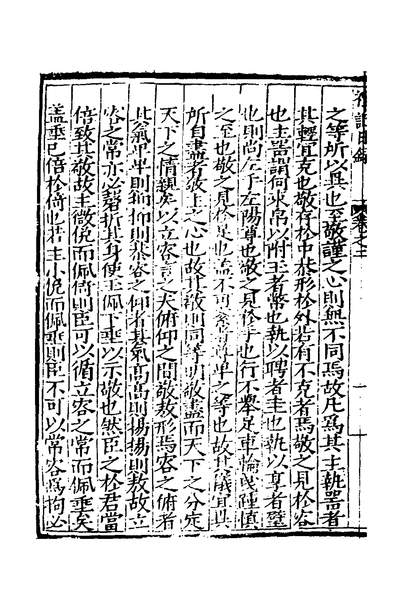 禮記日錄 卷之二
之等所以異也至敬謹之心則無不同焉故凡為其主執器者
其輕宜克也敬存於中恭形於外若有不克者焉敬之見於容
也主器謂何束帛以附玉者幣也執以聘者圭也執以享者璧
也則尚左手左陽尊也敬之見於手也行不舉足車輪曳踵慎
之至也敬之見於足也蓋不可尊卑之等也故其儀宜異
所自盡者敬上之心也故其敬則同等明敬盡而天下之分定
天下之情親矣以立容言之夫俯仰之間敬敖形焉容之俯者
其氣卑卑則抑抑則恭容之仰者其氣高高則揚揚則敖故立
容之常亦必磬折其身使玉佩下垂以示敬也然臣之於君當
倍致其敬故主微俛而佩倚則臣可以循立容之常而佩垂矣
蓋垂已倍於倚也若主小俛而佩垂則臣不可以常容為拘必